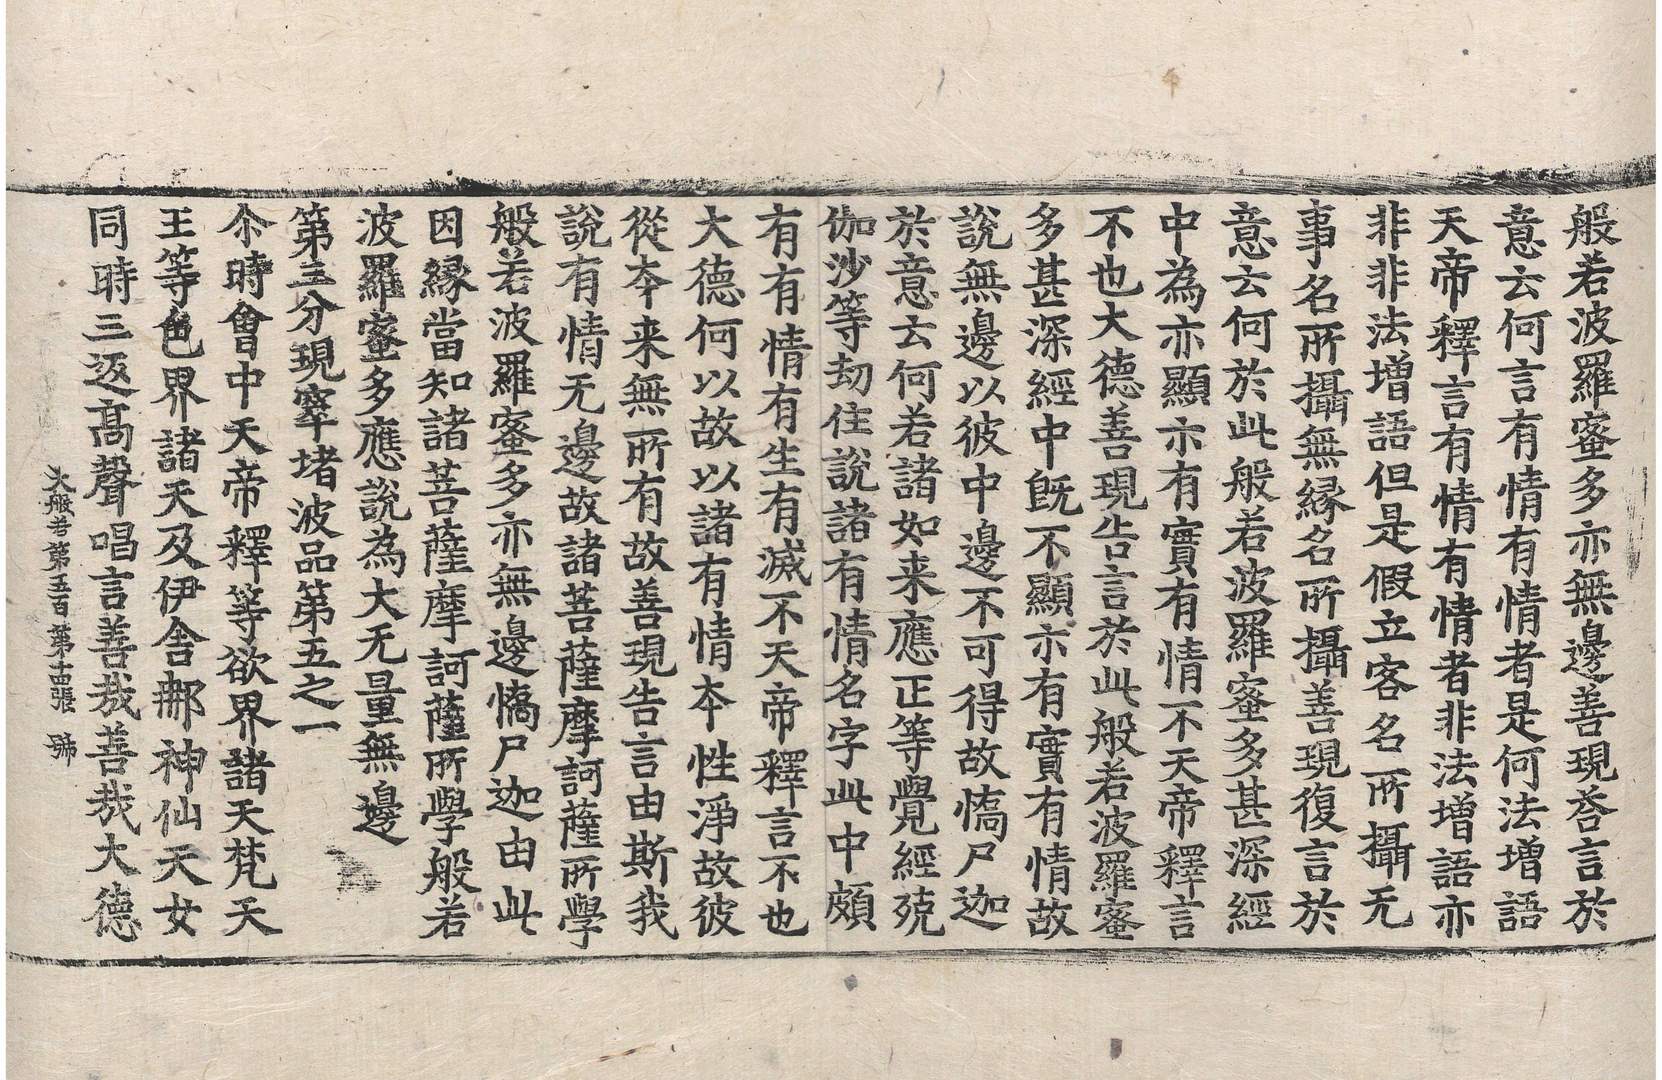 般若波羅蜜多亦無邊善現荅言於
意云何言有情有情者是何法增語
天帝釋言有情有情者非法增語亦
非非法增語但是假立客名所攝无
事名所攝無緣名所攝善現復言於
意云何於此般若波羅蜜多甚深經
中為亦顯示有實有情不天帝釋言
不也大德善現告言於此般若波羅蜜
多甚深經中旣不顯示有實有情故
說無邊以彼中邊不可得故憍尸迦
於意云何若諸如来應正等覺經殑
伽沙等劫住說諸有情名字此中頗
有有情有生有滅不天帝釋言不也
大德何以故以諸有情本性淨故彼
從本来無所有故善現告言由斯我
說有情无邊故諸菩薩摩訶薩所學
般若波羅蜜多亦無邊憍尸迦由此
因緣當知諸菩薩摩訶薩所學般若
波羅蜜多應說為大无量無邊
第三分現窣堵波品第五之一
尒時會中天帝釋等欲界諸天梵天
王等色界諸天及伊舍那神仙天女
同時三返髙聲唱言善㢤善㢤大德
大般若第五百 第十四張 號